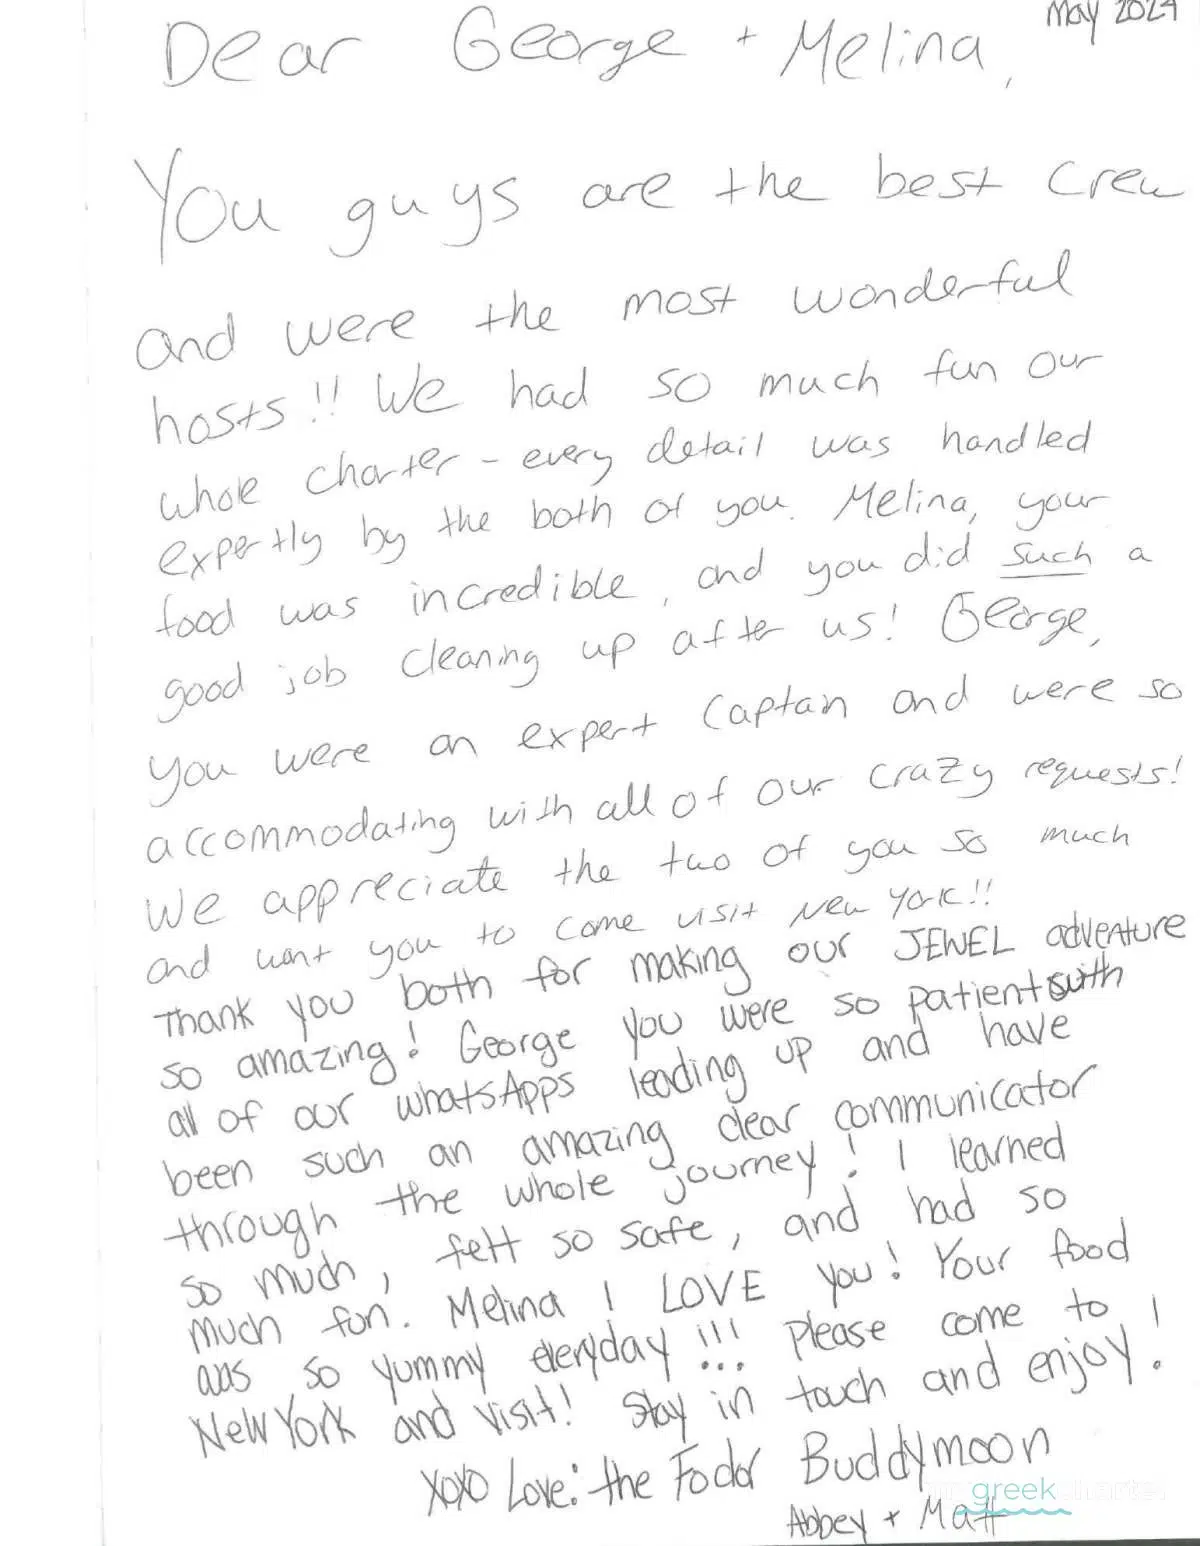 May 2024
Dear George + Melina,
You guys are the best crew
and were the most wonderful
hosts!! We had so much fun our
whole charter - every detail was handled
expertly by the both of you. Melina, your
food was incredible, and you did such a
good job cleaning up after us! George,
you were an expert Captain and were so
accommodating with all of our crazy requests!
We appreciate the two of you so much
and want you to come visit New York!!
Thank you both for making our JEWEL adventure
so amazing! George you were so patient with
all of our whatsApps leading up and have
been such an amazing clear communicator
through the whole journey! I learned
so much, felt so safe, and had so
much fun. Melina I LOVE you! Your food
was so yummy everyday!!! Please come to
New York and visit! Stay in touch and enjoy!
XOXO Love: the Fodor Buddymoon
greekcharter
Abbey + Matt